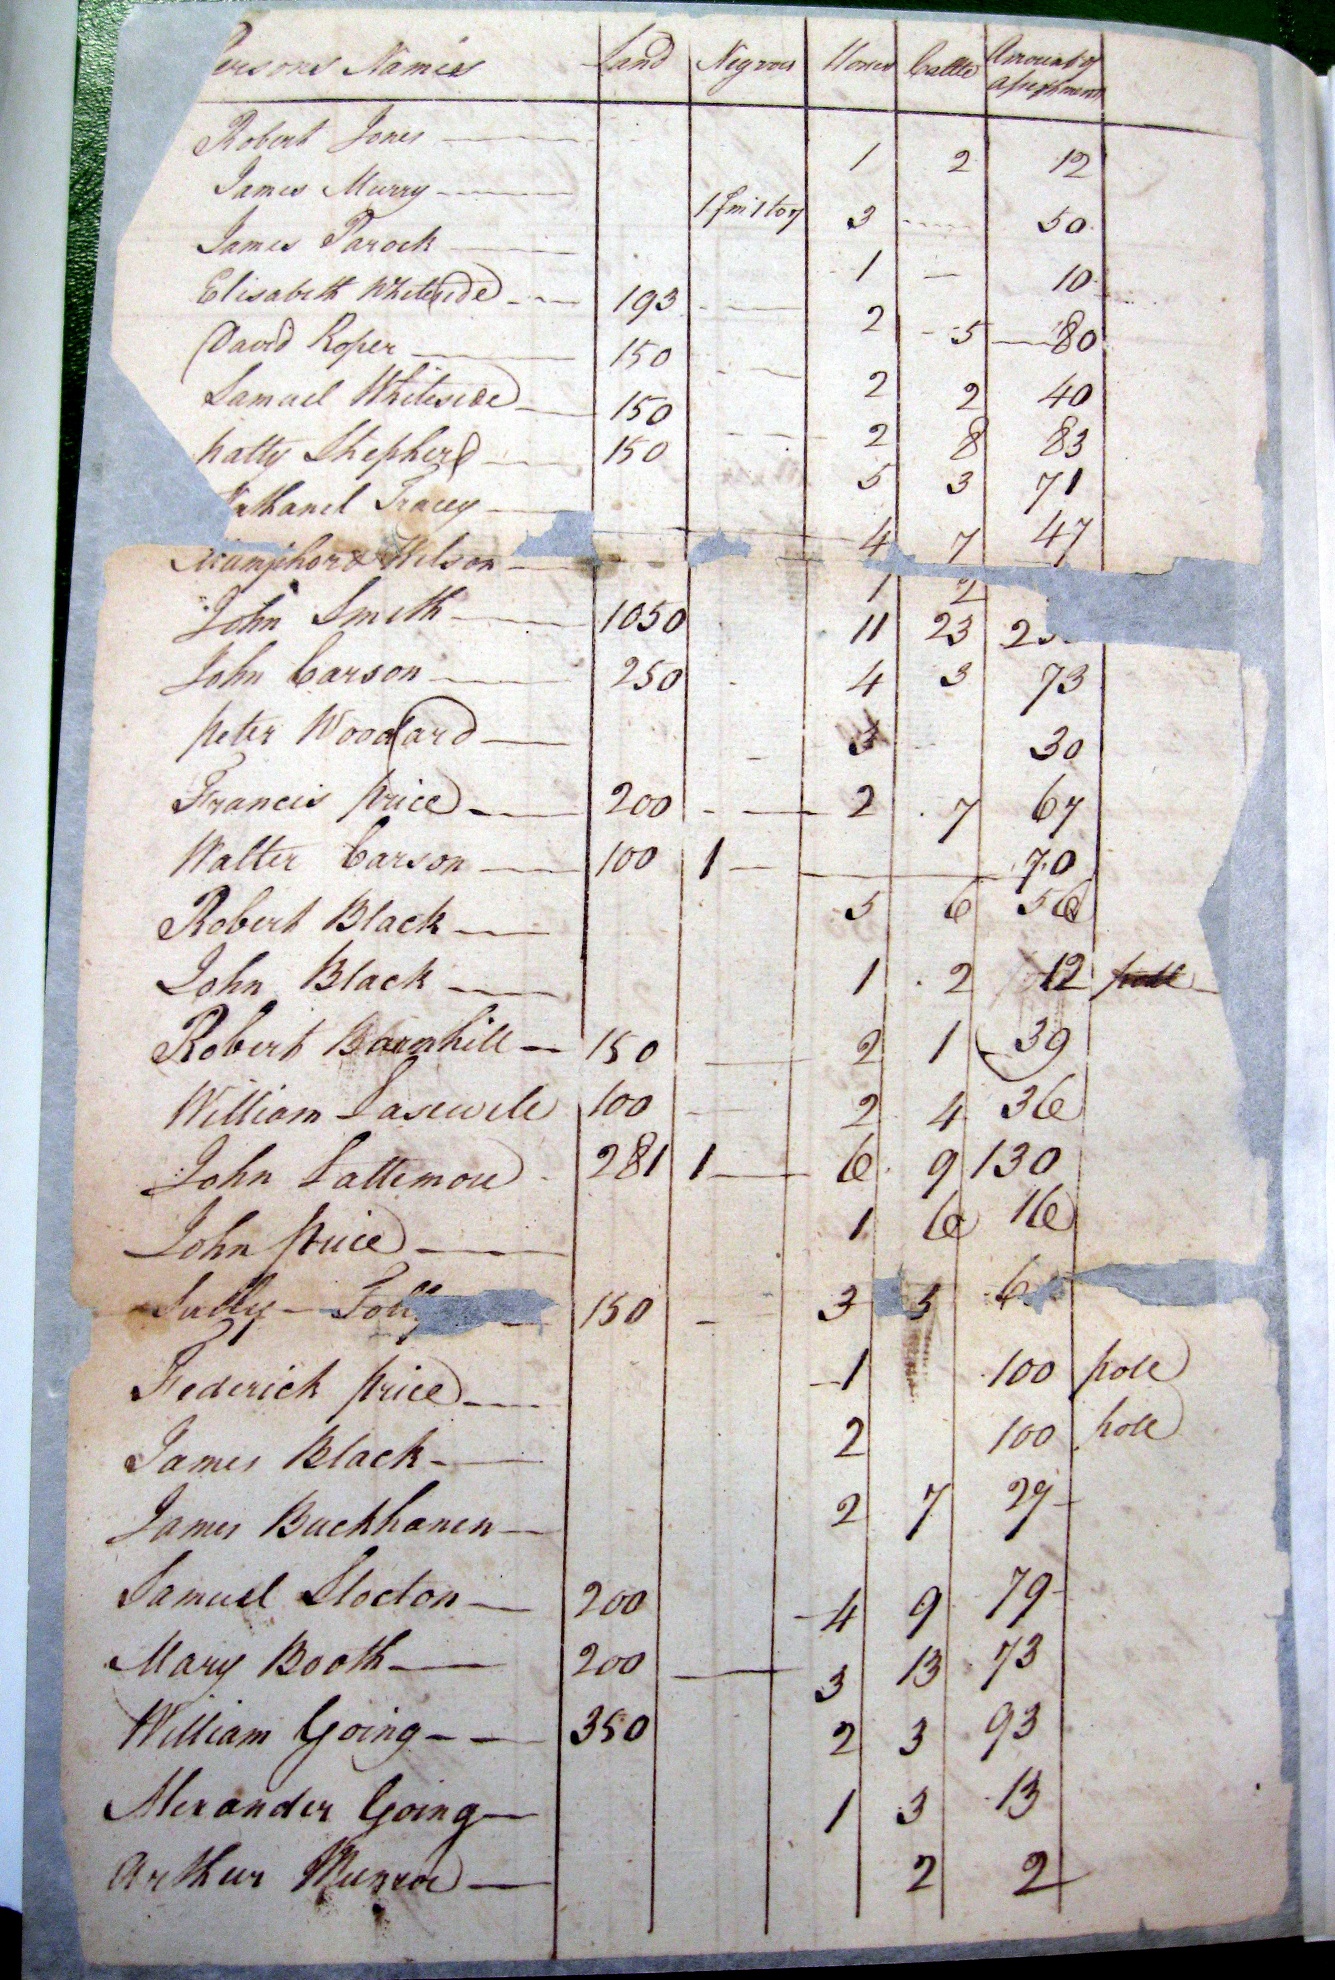 Persons Names Land Negroes Horses Cattle Amount of assessment
Robert Jones 1 2 12
James Murry 3 50
James Parock 1 10
Elisabeth Whiteside 193 2 5 80
David Roper 150 2 2 40
Samuel Whiteside 150 2 8 83
patty Shepherd 150 5 3 71
Nathanel Tracey 4 7 47
Wilson 1 2
John Smith 1050 11 23
John Carson 250 4 3 73
peter Woodard 3 30
Francis price 200 2 7 67
Walter Carson 100 1 70
Robert Black 5 6 56
John Black 1 2 12
Robert Barnhill 150 2 1 39
William 100 2 4 36
John Lattemore 281 1 6 9 130
John price 1 6 16
150 3 5
Frederick price 1 100 pole
James Black 2 100 pole
James Buckhanen 2 7 27
Samuel Stocton 200 4 9 79
Mary Booth 200 3 13 73
William Going 350 2 3 93
Alexander Going 1 3 13
Arthur Munroe 2 2